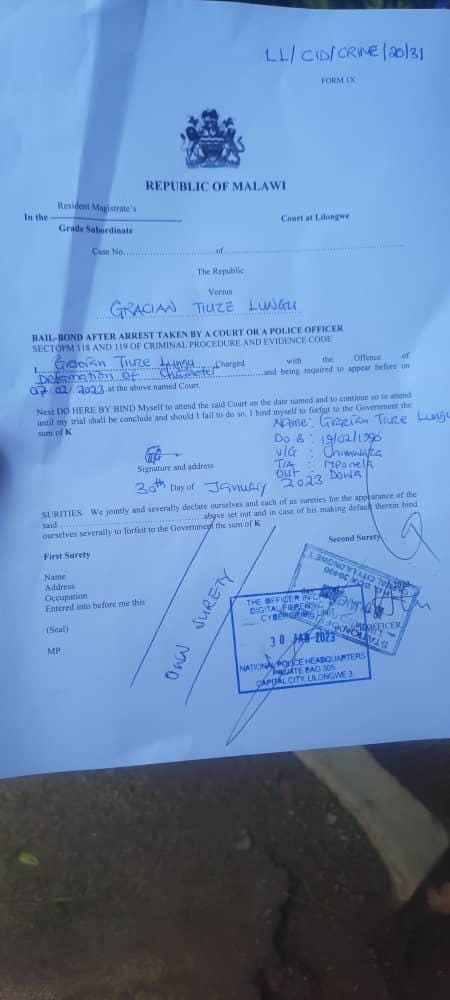 LL/CID/CRIME/20/31
FORM IX
REPUBLIC OF MALAWI
Resident Magistrate's
In the
Court at Lilongwe
Grade Subordinate
Case No. of
The Republic
Versus
GRACIAN TIUZE LUNGU
BAIL-BOND AFTER ARREST TAKEN BY A COURT OR A POLICE OFFICER
SECTOPM 118 AND 119 OF CRIMINAL PROCEDURE AND EVIDENCE CODE
I, Gracian Tiuze Lungu Charged with the Offense of
Defamation of Character and being required to appear before on
07/02/2023 at the above named Court.
Next DO HERE BY BIND Myself to attend the said Court on the date named and to continue so to attend
until my trial shall be conclude and should I fail to do so, I bind myself to forfeit to the Government the
sum of K
Name: Gracian Tiuze Lungu
DoB: 19/02/1996
V/G : Chimwaza
T/A : Mponela
DIST: Dowa
Signature and address
30th Day of January 2023
SURITIES. We jointly and severally declare ourselves and each of us sureties for the appearance of the
said above set out and in case of his making default therein bind
ourselves severally to forfeit to the Government the sum of K
First Surety
Second Surety
Name
Address
Occupation
Entered into before me this
(Seal)
MP
OWN SURETY
THE OFFICER IN
DIGITAL FORENSIC
CYBERCRIME UNIT
30 JAN 2023
NATIONAL POLICE HEADQUARTERS
PRIVATE BAG 305
CAPITAL CITY, LILONGWE 3
OFFICER